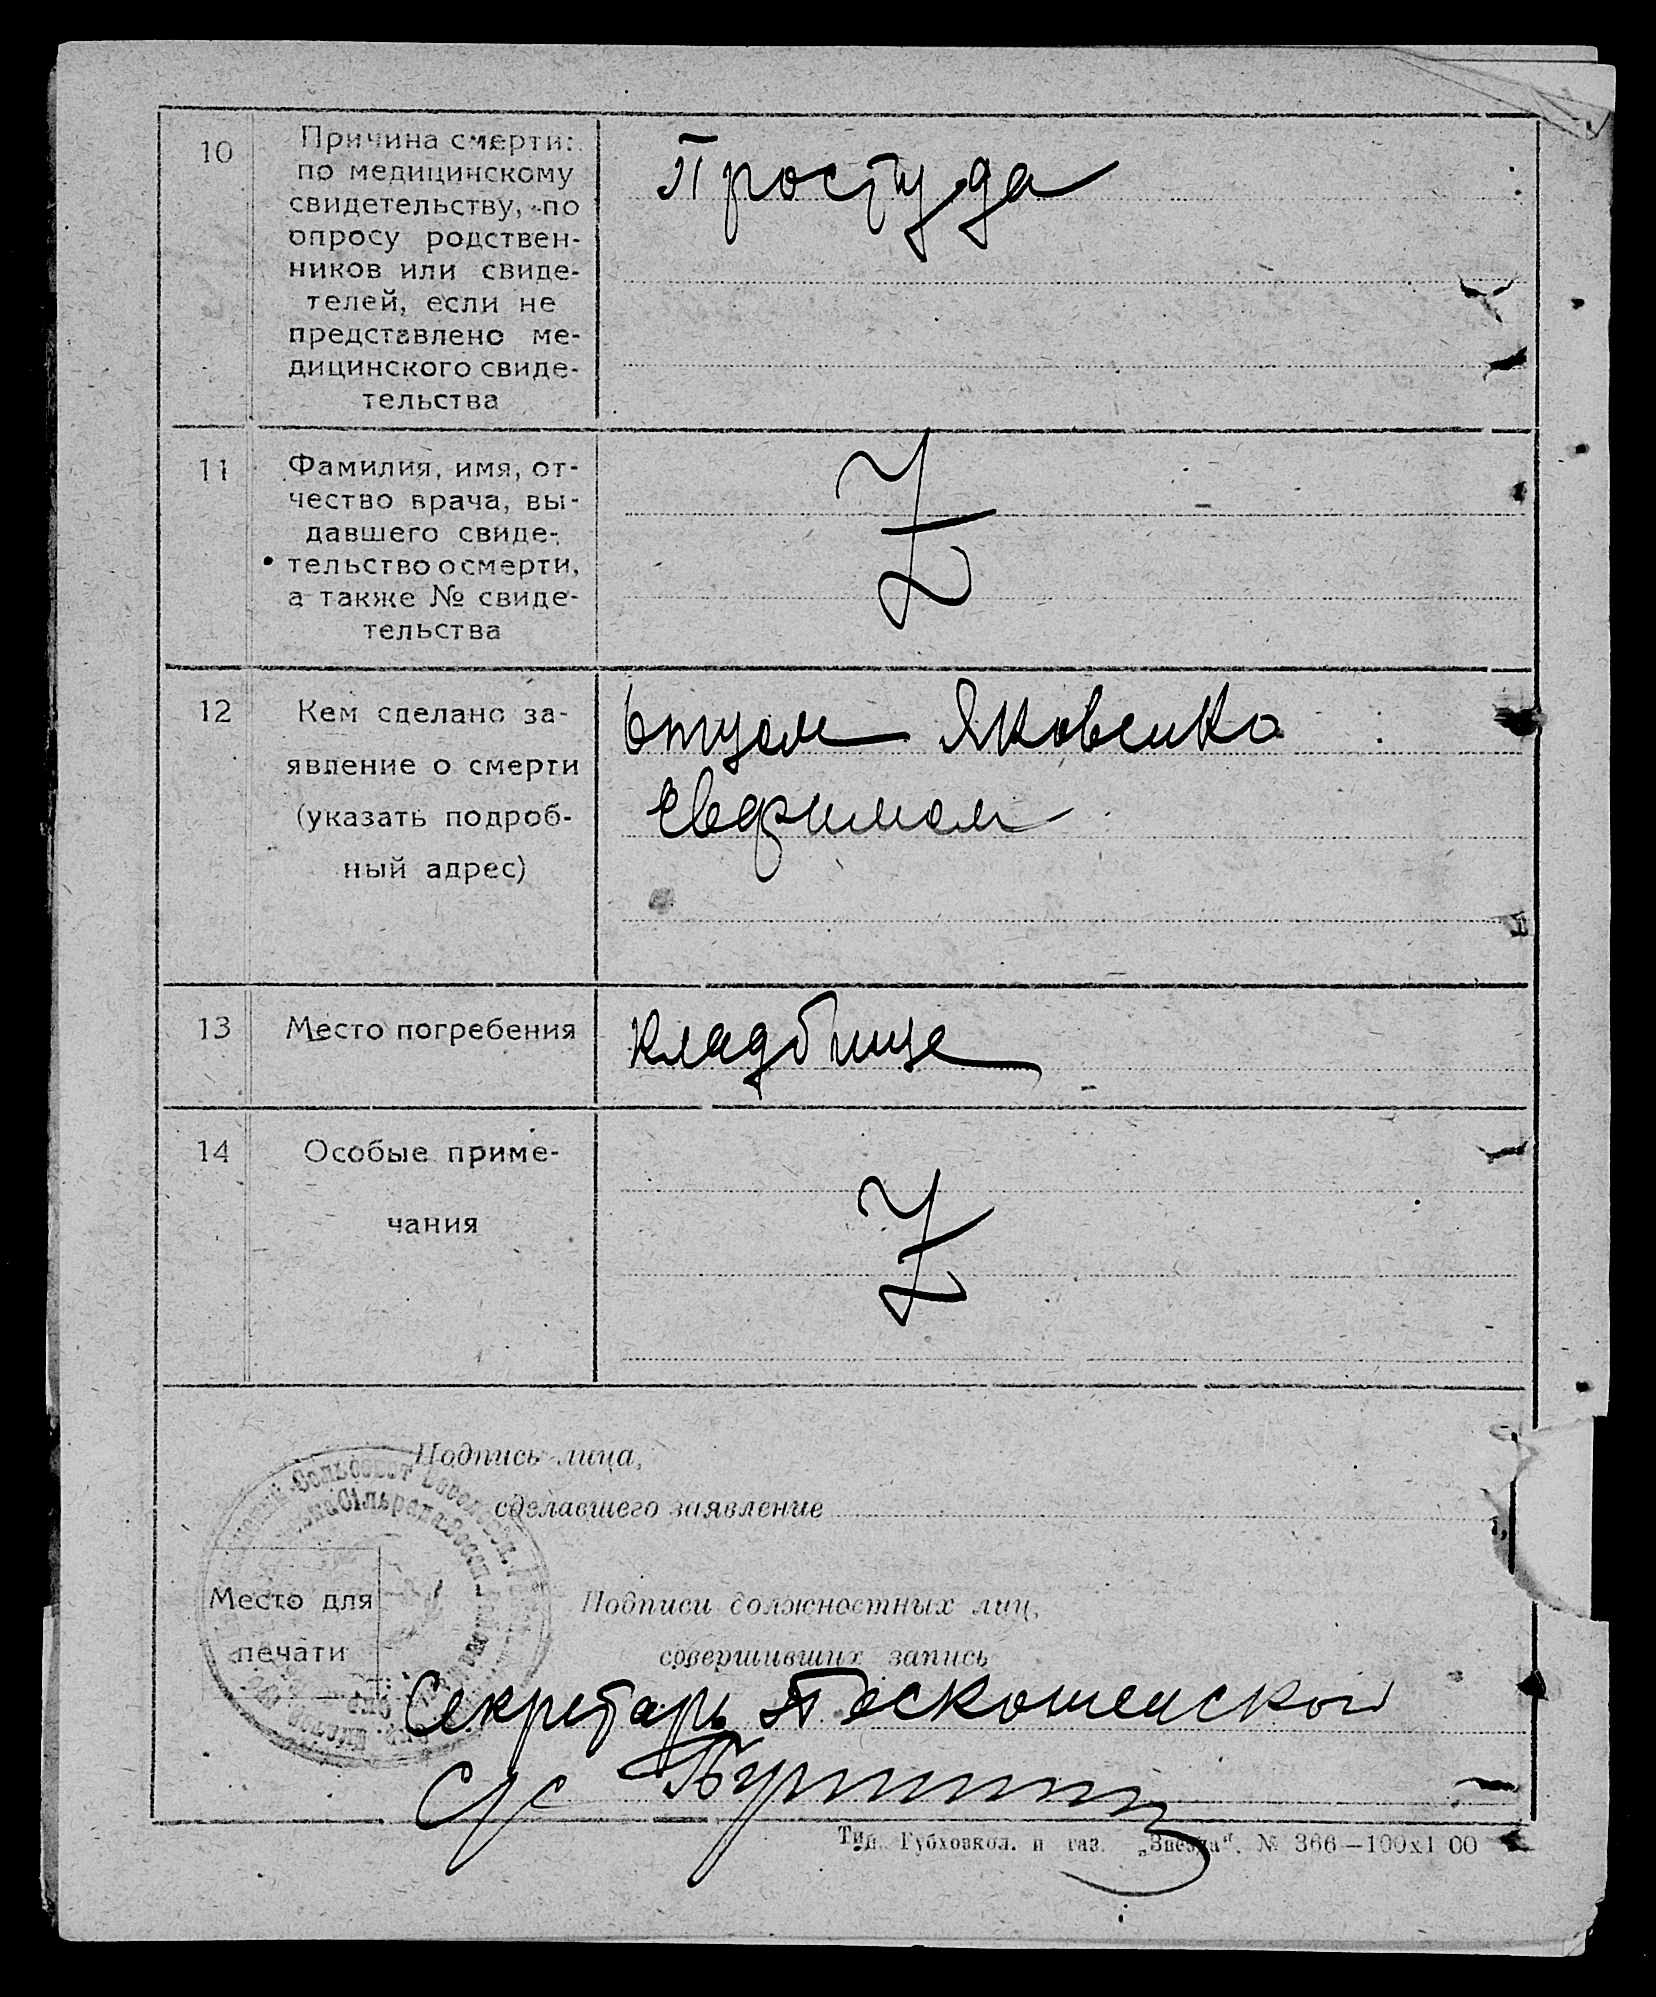 10
Причина смерти:
по медицинскому
свидетельству, по
опросу родствен-
ников или свиде-
телей, если не
представлено ме-
дицинского свиде-
тельства
Простуда
11
Фамилия, имя, от-
чество врача, вы-
давшего свиде-
тельство о смерти,
а также № свиде-
тельства
Z
12
Кем сделано за-
явление о смерти
(указать подроб-
ный адрес)
Отцом Яковенко
Евфимом
13
Место погребения
Кладбище
14
Особые приме-
чания
Z
Подпись лица,
сделавшего заявление
Место для
печати
Подписи должностных лиц,
совершивших запись
Секретарь
с/с
Тип. Губхозкол. и газ. „Звезда“. № 366—100х1 00